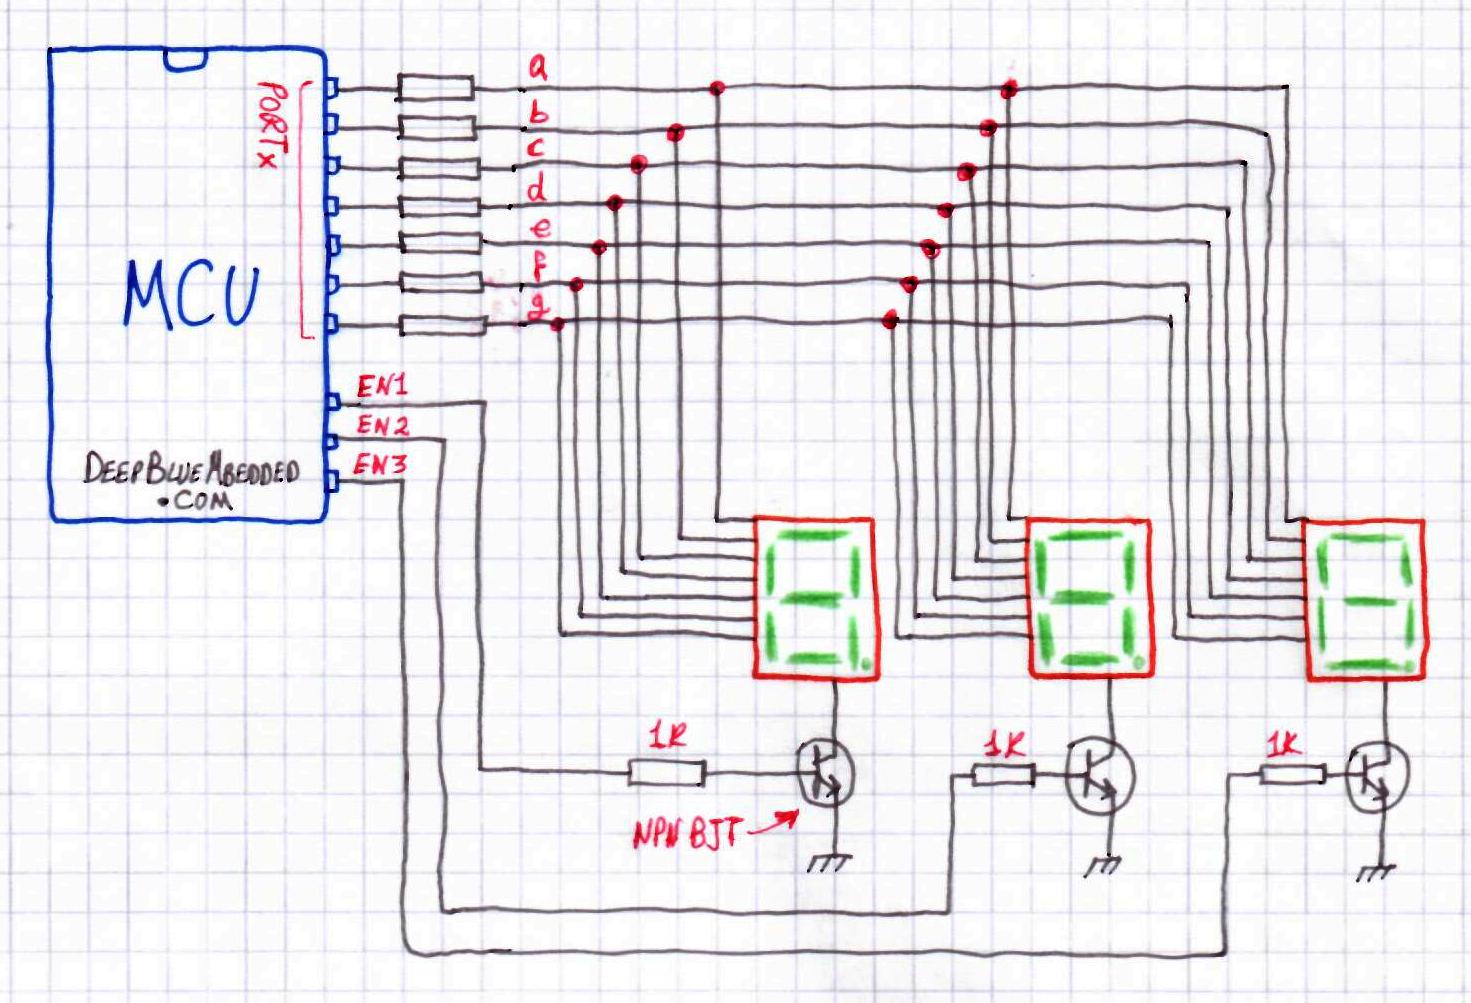 PORTx
a
b
c
d
e
f
g
MCU
EN1
EN2
EN3
DEEPBLUEMBEDDED
.COM
1K
1K
1K
NPN BJT